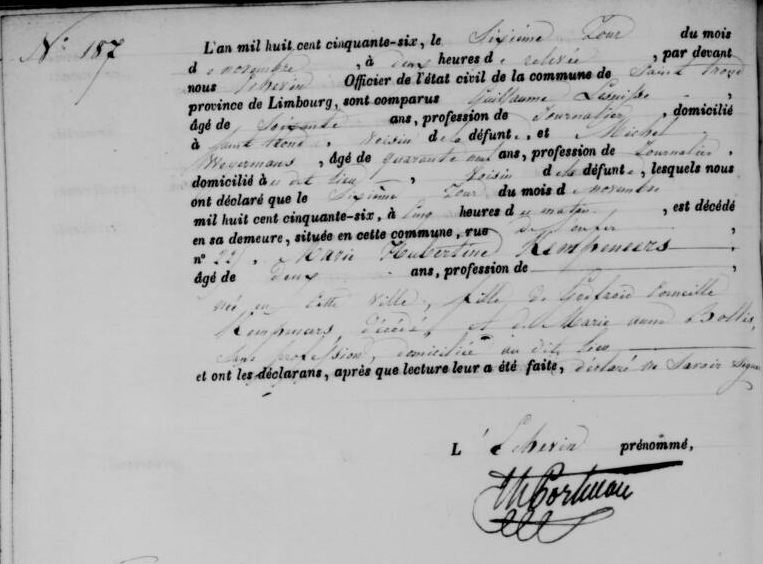 N° 187
L'an mil huit cent cinquante-six, le Sixième Jour du mois
de novembre, à deux heures de relevée, par devant
nous Echevin Officier de l'état civil de la commune de Saint trond
province de Limbourg, sont comparus Guillaume
âgé de Soixante ans, profession de Journalier, domicilié
à Saint trond, Voisin de la défunte, et Michel
Weyermans, âgé de quarante ans, profession de Journalier,
domicilié au dit lieu, Voisin de la défunte, lesquels nous
ont déclaré que le Sixième Jour du mois de novembre
mil huit cent cinquante-six, à Cinq heures du matin, est décédé
en sa demeure, située en cette commune, rue
n° Marie Hubertine Kempeneers,
âgé de deux ans, profession de
née en Cette Ville, fille de Godfroid Corneille
Kempeneers, décédé, et de Marie anne
Sans profession, domiciliée au dit lieu
et ont les déclarans, après que lecture leur a été faite, déclaré ne Savoir Signer
L'Echevin prénommé,